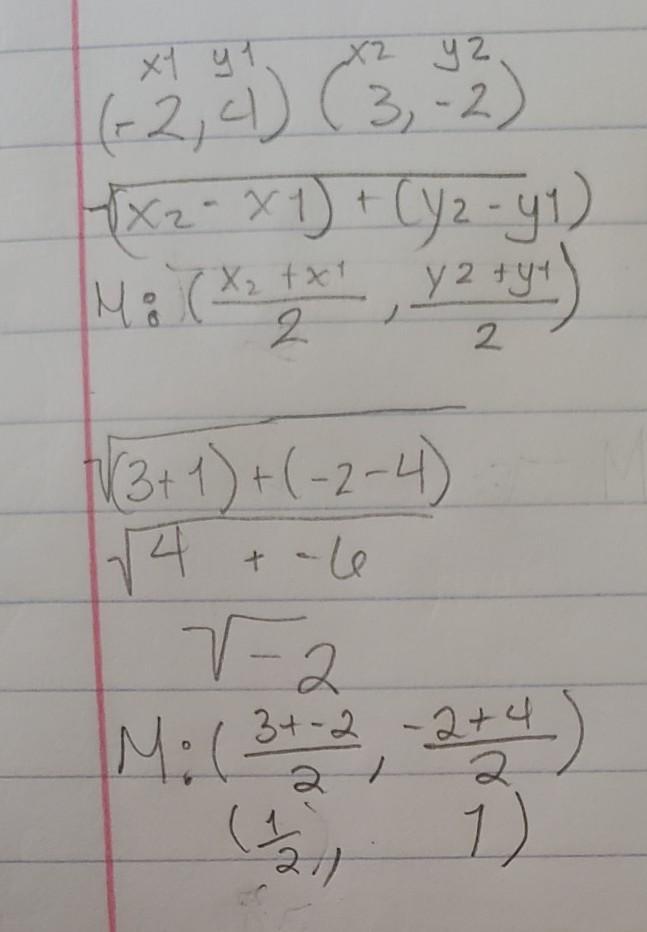 x1 y1 x2 y2
(-2, 4) (3, -2)
√(x2 - x1) + (y2 - y1)
M: (x2 + x1 / 2, y2 + y1 / 2)
√(3+1) + (-2-4)
√4 + -6
√-2
M: (3+-2 / 2, -2+4 / 2)
(1/2, 1)